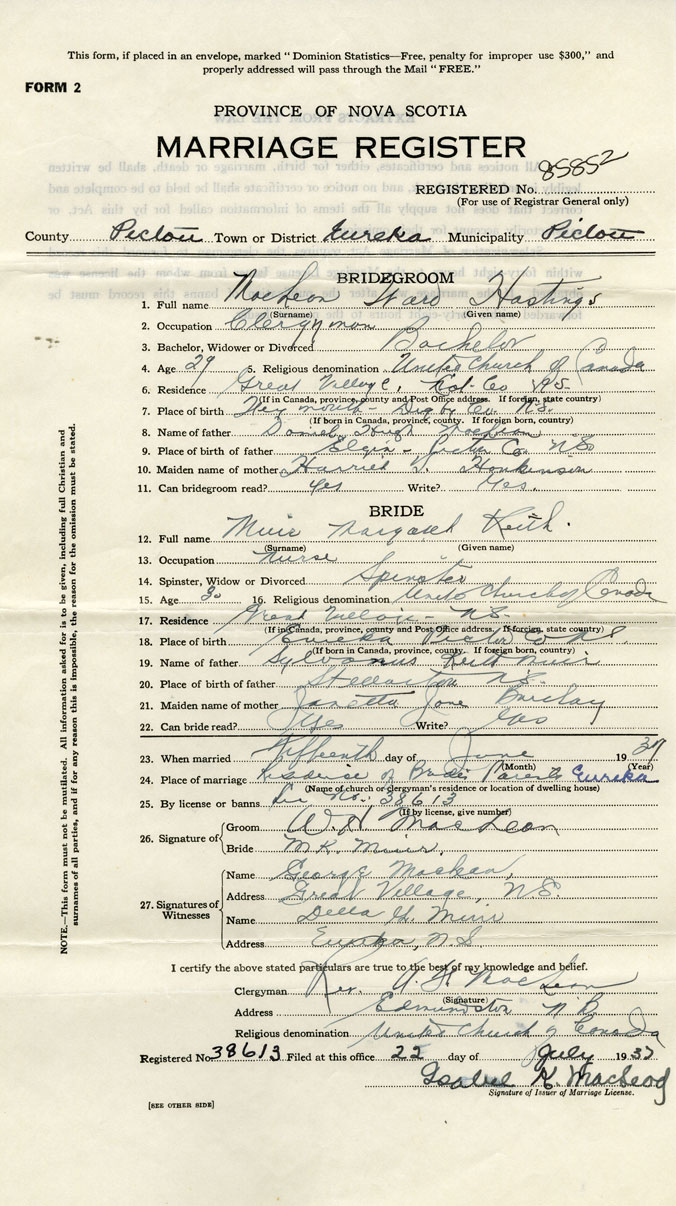 This form, if placed in an envelope, marked "Dominion Statistics—Free, penalty for improper use $300," and
properly addressed will pass through the Mail "FREE."
FORM 2
PROVINCE OF NOVA SCOTIA
MARRIAGE REGISTER
REGISTERED No. 85852
(For use of Registrar General only)
County Pictou Town or District Eureka Municipality Pictou
BRIDEGROOM
1. Full name MacLean Ward Hastings
(Surname) (Given name)
2. Occupation Clergyman
3. Bachelor, Widower or Divorced Bachelor
4. Age 29 5. Religious denomination United Church of Canada
6. Residence Great Village, Col. Co. N.S.
(If in Canada, province, county and Post Office address. If foreign, state country)
7. Place of birth Weymouth - Digby Co. N.S.
(If born in Canada, province, county. If foreign born, country)
8. Name of father Daniel Hugh MacLean
9. Place of father Elgin - Pictou Co. N.S.
10. Maiden name of mother Harriet Hankinson
11. Can bridegroom read? Yes Write? Yes.
BRIDE
12. Full name Muir Margaret Keith.
(Surname) (Given name)
13. Occupation Nurse
14. Spinster, Widow or Divorced Spinster
15. Age 30 16. Religious denomination United Church of Canada
17. Residence Great Village - N.S.
(If in Canada, province, county and Post Office address, If foreign, state country)
18. Place of birth Eureka Pictou Co. N.S.
(If born in Canada, province, county. If foreign born, country)
19. Name of father Sylvanus Keith Muir
20. Place of birth of father Stellarton N.S.
21. Maiden name of mother Janetta Jane Barclay
22. Can bride read? Yes Write? Yes
23. When married fifteenth day of June 1937
(Month) (Year)
24. Place of marriage Residence of Brides Parents Eureka
(Name of church or clergyman's residence or location of dwelling house)
25. By license or banns Lic. No. 38613
(If by license, give number)
26. Signature of
Groom W. H. MacLean
Bride M. K. Muir.
27. Signatures of Witnesses
Name George MacLean,
Address Great Village, N.S.
Name Della G. Muir
Address Eureka, N.S.
I certify the above stated particulars are true to the best of my knowledge and belief.
Clergyman Rev. A. H. MacLean
(Signature)
Address Edmundston N.B.
Religious denomination United Church of Canada
Registered No. 38613 Filed at this office 22 day of July 1937
Isabel K. MacLeod
Signature of Issuer of Marriage License.
[SEE OTHER SIDE]
NOTE.—This form must not be mutilated. All information asked for is to be given, including full Christian and
surnames of all parties, and if for any reason this is impossible, the reason for the omission must be stated.